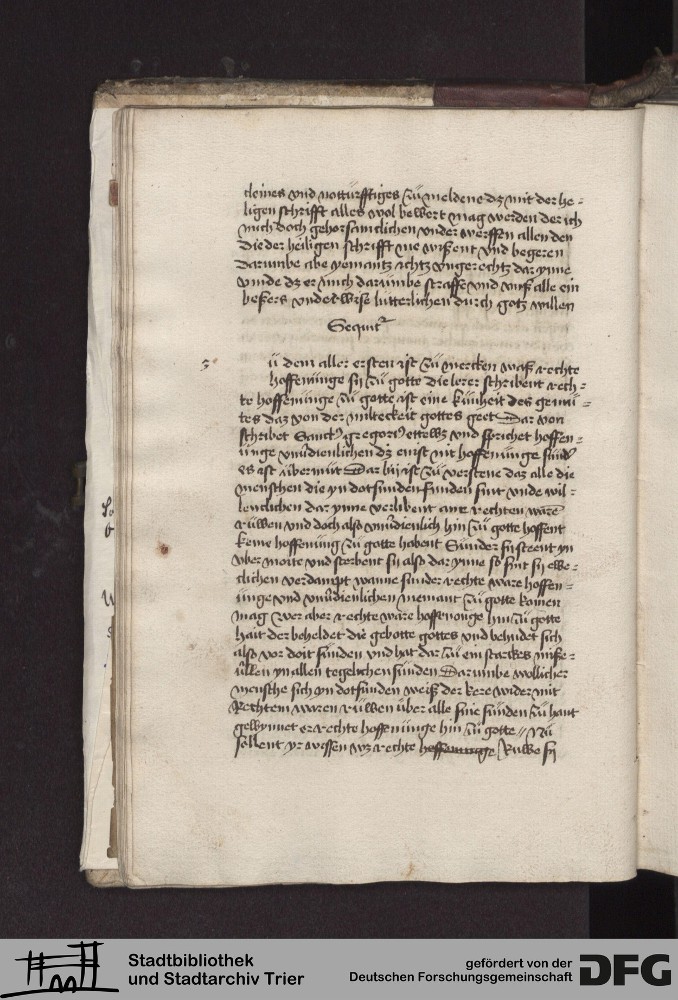 cleines vnd notturfftiges zu meldene dz mit der he-
ligen schrifft alles wol bewert mag werden der ich
mich doch gehorsamclichen vnder werffen allen den
die der heiligen schrifft me wissent vnd begeren
darumbe abe yemantz ichtz vngerechtz dar ynne
vinde dz er mich darumbe straffe vnd vnß alle ein
bessers vnderwise lutterlichen durch gotz willen
Sequitr
z
ü dem aller ersten ist zu mercken waß rechte
hoffenunge sy zu gotte die lerer schribent rech-
te hoffenunge zu gotte ist eine künheit des gemü-
tes daz von der milteckeit gottes geet Dar von
schribet Sanctus gregorius ettewz vnd sprichet hoffen-
unge vnuerdienlichen dz enist nit hoffenunge sunder
es ist übermüt Dar by ist zu verstene daz alle die
menschen die yn dotsunden funden sint vnde wil-
lenclichen dar ynne verlibent ane rechten waren
rüwen vnd doch also vnuerdienlich hin zu gotte hoffent
keine hoffenung zu gotte habent Sunder sy steent yn
vber moite vnd sterbent sy also dar ynne so sint sy ewe-
clichen verdampt wanne sunder rechte ware hoffen-
unge vnd vnuerdienlichen niemant zu gotte komen
mag Wer aber rechte ware hoffenonge hin zu gotte
hait der beheldet die gebotte gottes vnd behudet sich
also vor doit sunden vnd hat dar zu ein starckes misse-
uallen yn allen tegelichen sunden Darumbe wollicher
mensche sich yn dotsunden weiß der kere wider mit
Rechtem waren rüwen über alle sine sunden zu hant
gewynnet er rechte hoffenunge hin zu gotte // Nü
sollent yr wissen wz rechte hoffenunge Ruwe sy
Stadtbibliothek
und Stadtarchiv Trier
gefördert von der
Deutschen Forschungsgemeinschaft
DFG